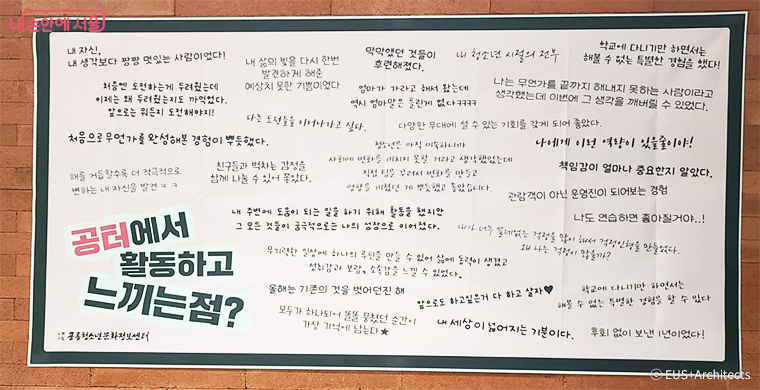 내 손안에 서울
내 자신,
내 생각보다 짱짱 멋있는 사람이었다!
내 삶의 빛을 다시 한번
발견하게 해준
예상치 못한 기쁨이었다
막막했던 것들이
훈련해졌다.
내 청소년 시절의 전부
학교에 다니기만 하면서는
해볼 수 없는 특별한 경험을 했다!
처음엔 도전하는게 두려웠는데
이제는 왜 두려웠는지도 까먹었다.
앞으로는 뭐든지 도전해야지!
엄마가 가라고 해서 왔는데
역시 엄마말은 틀린게 없다ㅋㅋㅋㅋ
나는 무언가를 끝까지 해내지 못하는 사람이라고
생각했는데 이번에 그 생각을 깨버릴 수 있었다.
다른 도전들을 이어나가고 싶다.
다양한 무대에 설 수 있는 기회를 갖게 되어 좋았다.
처음으로 무언가를 완성해본 경험이 뿌듯했다.
청소년은 아직 미숙하니까
사회에 변화를 끼치지 못할 거라고 생각했었는데
직접 팀을 꾸려서 변화를 만들고
영향을 끼쳤던 게 뿌듯했고 좋았습니다.
나에게 이런 역량이 있을줄이야!
해를 거듭할수록 더 적극적으로
변하는 내 자신을 발견 ㅋㅋ
친구들과 벅차는 감정을
함께 나눌 수 있어 좋았다.
책임감이 얼마나 중요한지 알았다.
관람객이 아닌 운영진이 되어보는 경험
내 주변에 도움이 되는 일을 하기 위해 활동을 했지만
그 모든 것들이 궁극적으로는 나의 성장으로 이어졌다.
나도 연습하면 좋아질거야..!
내가 너무 쓸데없는 걱정을 많이 해서 걱정인형을 만들었다.
왜 나는 걱정이 많을까?
공터에서
활동하고
느끼는점?
무기력한 일상에 하나의 루틴을 만들 수 있어 삶에 동력이 생겼고
성취감과 보람, 소속감을 느낄 수 있었다.
올해는 기존의 것을 벗어던진 해
앞으로도 하고싶은거 다 하고 살자♥
학교에 다니기만 하면서는
해볼 수 없는 특별한 경험을 할 수 있다
모두가 하나되어 똘똘 뭉쳤던 순간이
가장 기억에 남는다★
내 세상이 넓어지는 기분이다.
후회 없이 보낸 1년이었다!
공릉청소년문화정보센터
ⓒ EUS+Architects